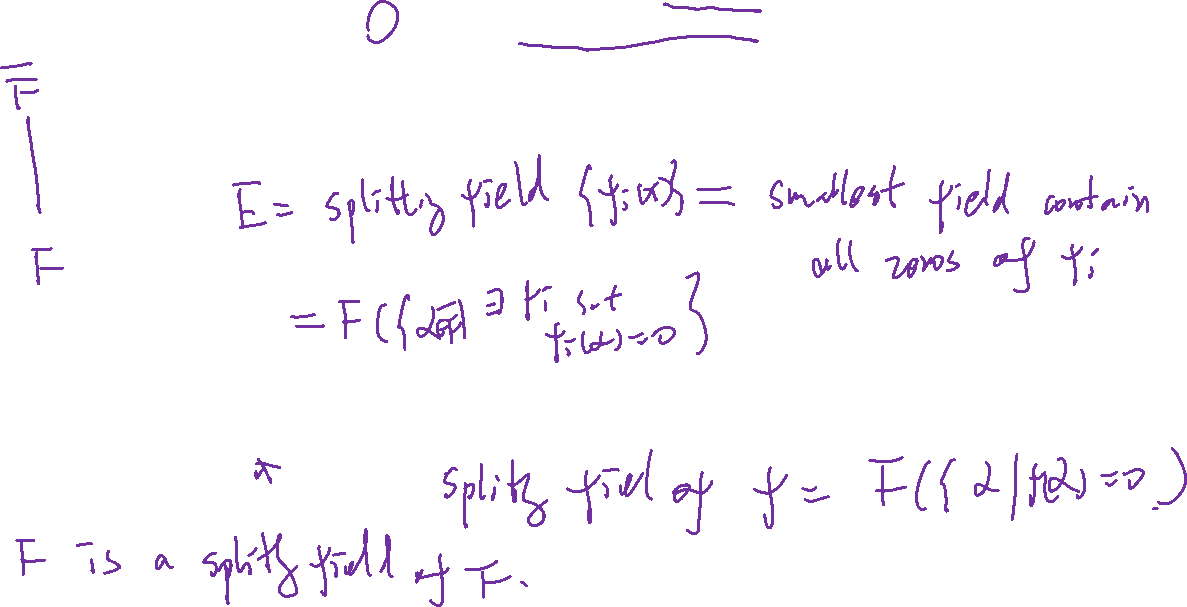 F̅
F
E = splitting field {f_i(x)} = smallest field contain
all zeros of f_i
= F({α∈F̅ | ∃ f_i s.t
f_i(α)=0}
*
splitting field of f = F({α | f(α)=0)
F is a splitting field of F.